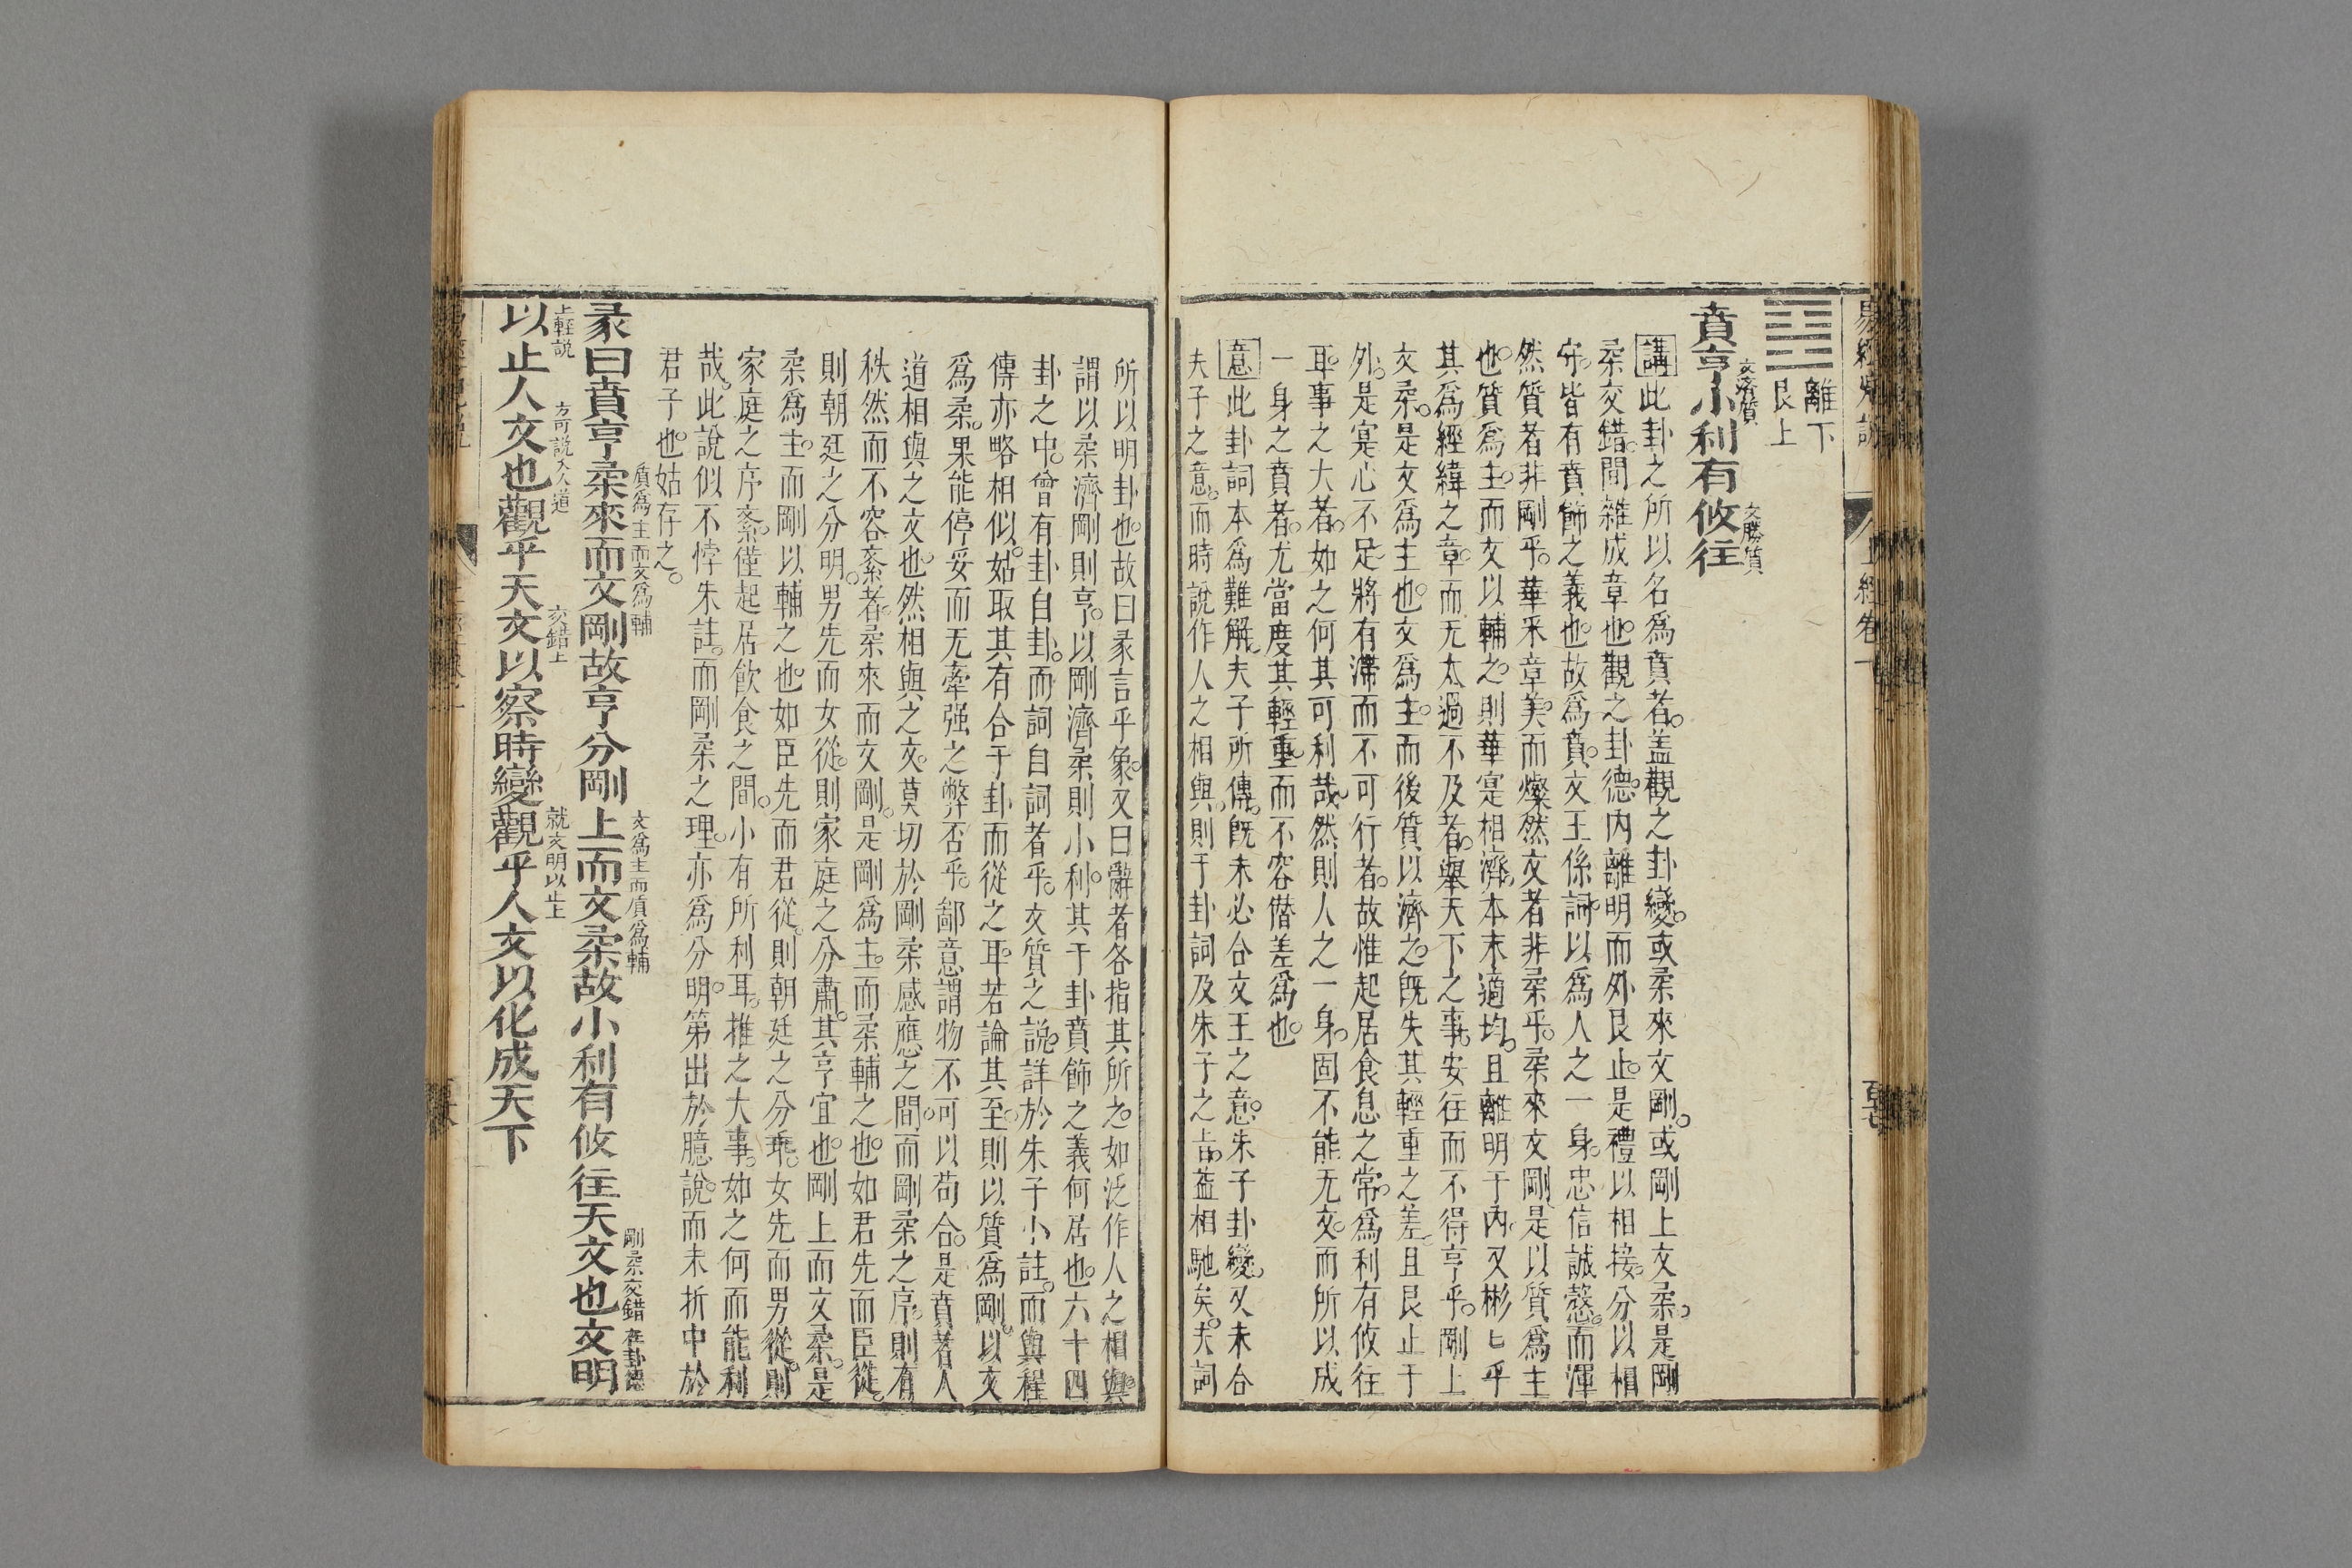 離下
艮上
賁亨小利有攸往
文濟質
文勝質
講此卦之所以名爲賁者蓋觀之卦變或柔來文剛或剛上文柔是剛
柔交錯間雜成章也觀之卦德內離明而外艮止是禮以相接分以相
守皆有賁飾之義也故爲賁文王係詞以爲人之一身忠信誠慤而渾
然質者非剛乎華釆章美而燦然文者非柔乎柔來文剛是以質爲主
也質爲主而文以輔之則華寔相濟本末適均且離明于內又彬匕乎
其爲經緯之章而无太過不及者舉天下之事安往而不得亨乎剛上
文柔是文爲主也文爲主而後質以濟之旣失其輕重之差且艮止于
外是寔心不足將有滯而不可行者故惟起居食息之常爲利有攸往
耳事之大者如之何其可利哉然則人之一身固不能无文而所以成
一身之賁者尤當度其輕重而不容僭差爲也
意此卦詞本爲難解夫子所傳旣未必合文王之意朱子卦變又未合
夫子之意而時說作人之相與則于卦詞及朱子之旨葢相馳矣夫詞
所以明卦也故曰彖言乎象又曰辭者各指其所之如泛作人之相與
謂以柔濟剛則亨以剛濟柔則小利其于卦賁飾之義何居也六十四
卦之中曾有卦自卦而詞自詞者乎文質之說詳於朱子小註而與程
傳亦略相似姑取其有合于卦而從之耳若論其至則以質爲剛以文
爲柔果能停妥而无牽强之弊否乎鄙意謂物不可以苟合是賁者人
道相與之文也然相與之文莫切於剛柔感應之間而剛柔之序則有
秩然而不容紊者柔來而文剛是剛爲主而柔輔之也如君先而臣從
則朝廷之分明男先而女從則家庭之分肅其亨宜也剛上而文柔是
柔爲主而剛以輔之也如臣先而君從則朝廷之分乖女先而男從則
家庭之序紊僅起居飲食之間小有所利耳推之大事如之何而能利
哉此說似不悖朱註而剛柔之理亦爲分明第出於臆說而未折中於
君子也姑存之
質爲主而文爲輔
文爲主而質爲輔
剛柔交錯在卦德
彖曰賁亨柔來而文剛故亨分剛上而文柔故小利有攸往天文也文明
上輕說
方可說入人道
交錯上
就文明以止上
以止人文也觀乎天文以察時變觀乎人文以化成天下